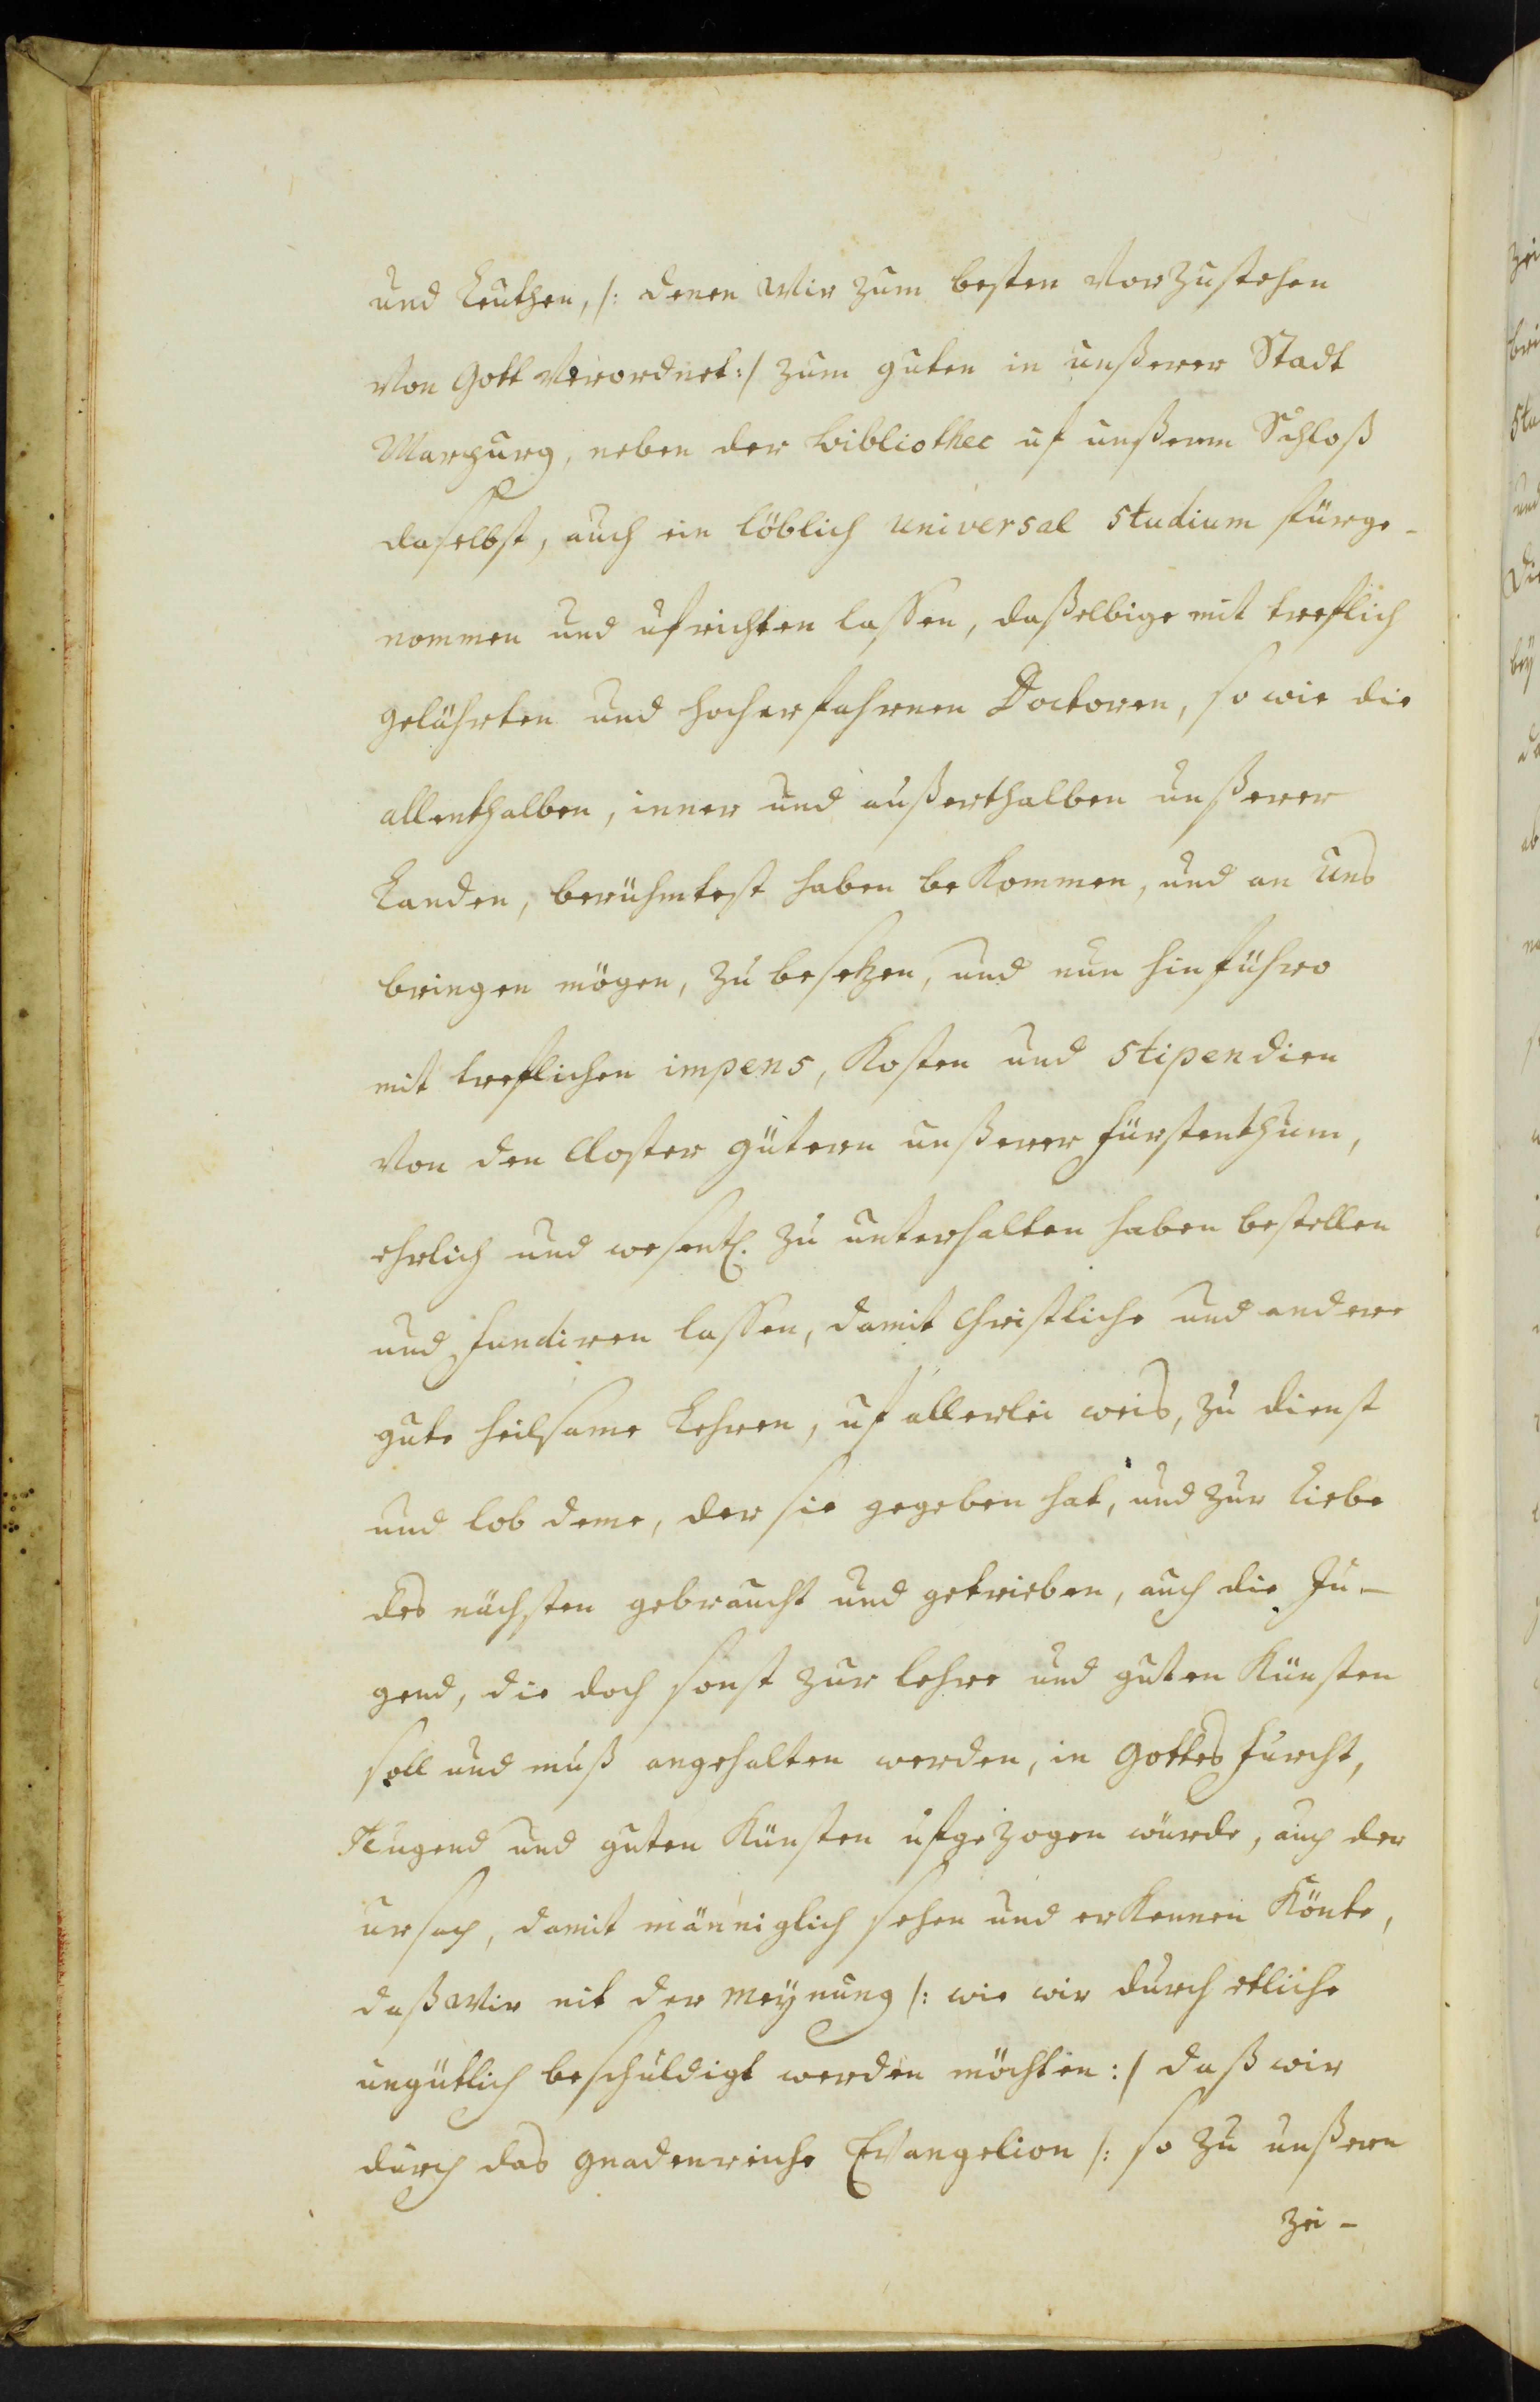 und Leuthen, /: denen Wir zum besten Vorzustehen
Von Gott Verordnet :/ zum guten in unßerer Stadt
Marpurg, neben der bibliothec uf unßerm Schloß
daselbst, auch ein löblich universal studium fürge-
nommen und ufrichten laßen, daßelbige mit treflich
gelährten und hocherfahrnen Doctoren, so wie die
allenthalben, inner und außerthalben unßerer
Landen, berühmtest haben bekommen, und an Uns
bringen mögen, zu besetzen, und nun hinführo
mit treflichen impens, Kosten und stipendien
Von den Closter gütern unßerer fürstenthum,
ehrlich und wesentl. zu unterhalten haben bestellen
und fundiren laßen, damit Christliche und andere
gute heilsame Lehren, uf allerlei weis, zu dienst
und lob deme, der sie gegeben hat, und zur Liebe
des nächsten gebraucht und getrieben, auch die Ju-
gend, die doch sonst zur lehre und guten Künsten
soll und muß angehalten werden, in Gottes furcht,
Tugend und guten Künsten ufgezogen würde, auch der
ursach, damit männiglich sehen und erkennen Könte,
daß Wir nit der Meynung /: wie wir durch etliche
ungütlich beschuldigt werden möchten :/ daß wir
durch das gnadenreiche Evangelion /: so zu unßern
zei-